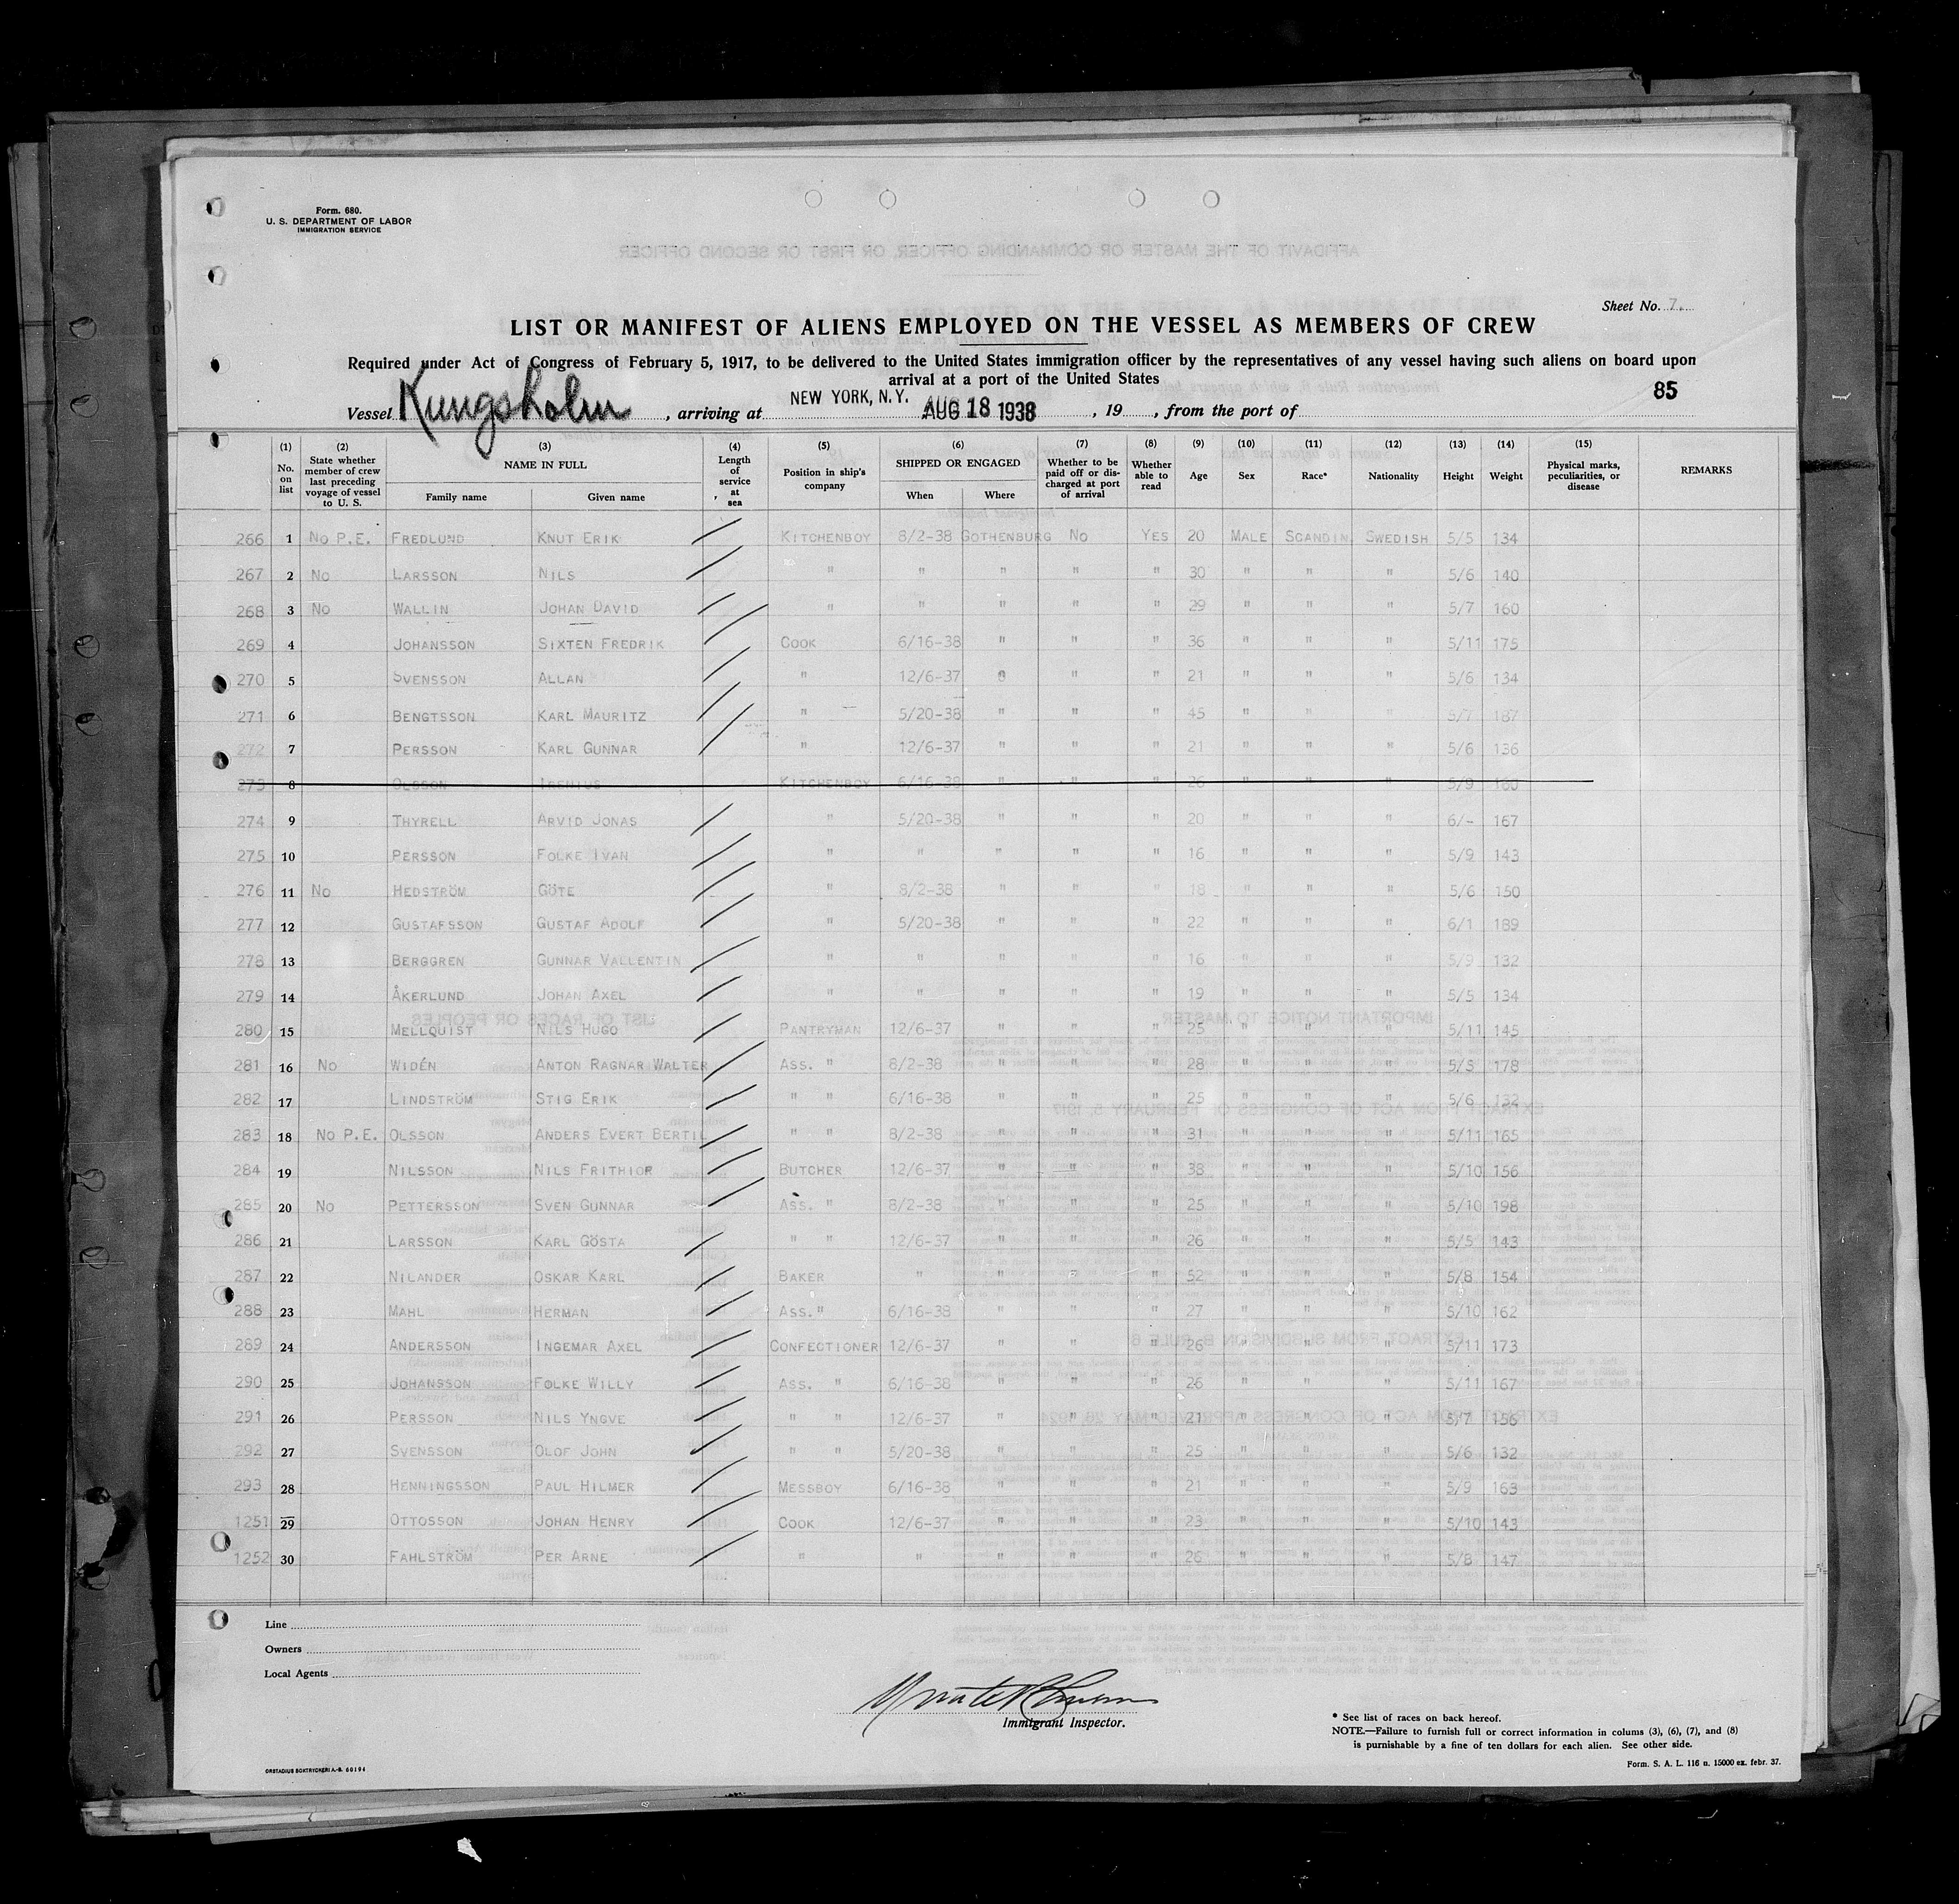 Form. 680.
U. S. DEPARTMENT OF LABOR
IMMIGRATION SERVICE
Sheet No. 7.
LIST OR MANIFEST OF ALIENS EMPLOYED ON THE VESSEL AS MEMBERS OF CREW
Required under Act of Congress of February 5, 1917, to be delivered to the United States immigration officer by the representatives of any vessel having such aliens on board upon
arrival at a port of the United States
85
Vessel Kungsholm, arriving at NEW YORK, N.Y. AUG 18 1938, 19, from the port of
(1) No. on list (2) State whether member of crew last preceding voyage of vessel to U. S. (3) NAME IN FULL Family name Given name (4) Length of service at sea (5) Position in ship's company (6) SHIPPED OR ENGAGED When Where (7) Whether to be paid off or discharged at port of arrival (8) Whether able to read (9) Age (10) Sex (11) Race* (12) Nationality (13) Height (14) Weight (15) Physical marks, peculiarities, or disease REMARKS
266 1 No P.E. FREDLUND KNUT ERIK KITCHENBOY 8/2-38 GOTHENBURG No YES 20 MALE SCANDIN. SWEDISH 5/5 134
267 2 No LARSSON NILS " " " " " 30 " " " 5/6 140
268 3 No WALLIN JOHAN DAVID " " " " " 29 " " " 5/7 160
269 4 JOHANSSON SIXTEN FREDRIK COOK 6/16-38 " " " 36 " " " 5/11 175
270 5 SVENSSON ALLAN " 12/6-37 " " " 21 " " " 5/6 134
271 6 BENGTSSON KARL MAURITZ " 5/20-38 " " " 45 " " " 5/7 187
272 7 PERSSON KARL GUNNAR " 12/6-37 " " " 21 " " " 5/6 136
273 8 OLSSON IRENIUS KITCHENBOY 6/16-38 " " " 26 " " " 5/9 160
274 9 THYRELL ARVID JONAS " 5/20-38 " " " 20 " " " 6/- 167
275 10 PERSSON FOLKE IVAN " " " " " 16 " " " 5/9 143
276 11 No HEDSTRÖM GÖTE " 8/2-38 " " " 18 " " " 5/6 150
277 12 GUSTAFSSON GUSTAF ADOLF " 5/20-38 " " " 22 " " " 6/1 189
278 13 BERGGREN GUNNAR VALLENTIN " " " " " 16 " " " 5/9 132
279 14 ÅKERLUND JOHAN AXEL " " " " " 19 " " " 5/5 134
280 15 MELLQUIST NILS HUGO PANTRYMAN 12/6-37 " " " 25 " " " 5/11 145
281 16 No WIDÉN ANTON RAGNAR WALTER ASS. " 8/2-38 " " " 28 " " " 5/5 178
282 17 LINDSTRÖM STIG ERIK " " 6/16-38 " " " 25 " " " 5/6 132
283 18 No P.E. OLSSON ANDERS EVERT BERTIL " " 8/2-38 " " " 31 " " " 5/11 165
284 19 NILSSON NILS FRITHIOF BUTCHER 12/6-37 " " " 38 " " " 5/10 156
285 20 No PETTERSSON SVEN GUNNAR ASS. " 8/2-38 " " " 25 " " " 5/10 198
286 21 LARSSON KARL GÖSTA " " 12/6-37 " " " 26 " " " 5/5 143
287 22 NILANDER OSKAR KARL BAKER " " " " 52 " " " 5/8 154
288 23 MAHL HERMAN ASS. " 6/16-38 " " " 27 " " " 5/10 162
289 24 ANDERSSON INGEMAR AXEL CONFECTIONER 12/6-37 " " " 26 " " " 5/11 173
290 25 JOHANSSON FOLKE WILLY ASS. " 6/16-38 " " " 26 " " " 5/11 167
291 26 PERSSON NILS YNGVE " " 12/6-37 " " " 21 " " " 5/7 156
292 27 SVENSSON OLOF JOHN " " 5/20-38 " " " 25 " " " 5/6 132
293 28 HENNINGSSON PAUL HILMER MESSBOY 6/16-38 " " " 21 " " " 5/9 163
1251 29 OTTOSSON JOHAN HENRY COOK 12/6-37 " " " 23 " " " 5/10 143
1252 30 FAHLSTRÖM PER ARNE " " " " " 26 " " " 5/8 147
Line
Owners
Local Agents
Immigrant Inspector.
* See list of races on back hereof.
NOTE.—Failure to furnish full or correct information in colums (3), (6), (7), and (8)
is punishable by a fine of ten dollars for each alien. See other side.
ORSTADIUS BOKTRYCKERI A.-B. 60194
Form. S. A. L. 116 n. 15000 ex. febr. 37.